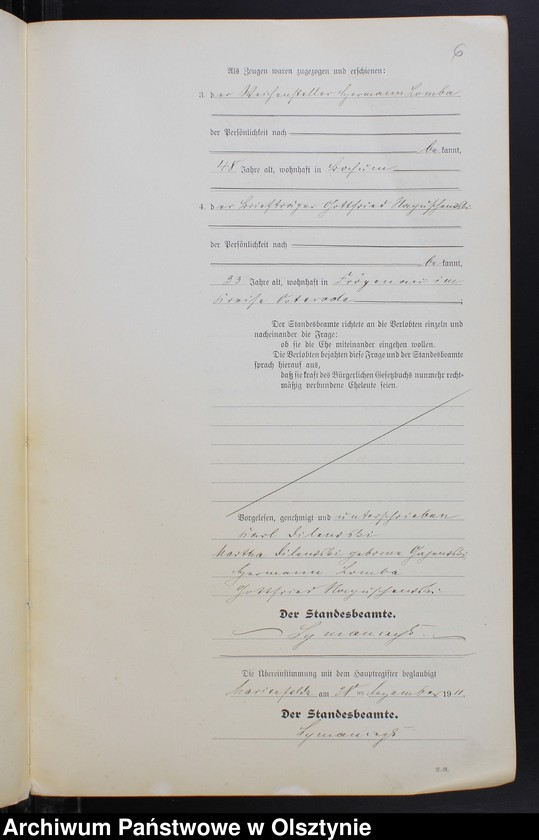 6
Als Zeugen waren zugezogen und erschienen:
3. der Weichensteller Hermann Zomba
der Persönlichkeit nach
be kannt,
48 Jahre alt, wohnhaft in Bochum
4. der Briefträger Gottfried
der Persönlichkeit nach
be kannt,
33 Jahre alt, wohnhaft in Frögenau im
Kreise Osterode
Der Standesbeamte richtete an die Verlobten einzeln und
nacheinander die Frage:
ob sie die Ehe miteinander eingehen wollen.
Die Verlobten bejahten diese Frage und der Standesbeamte
sprach hierauf aus,
daß sie kraft des Bürgerlichen Gesetzbuchs nunmehr recht-
mäßig verbundene Eheleute seien.
Vorgelesen, genehmigt und unterschrieben
Karl Dilewski
Martha Dilewski geborne Gajewski
Hermann Zomba
Gottfried
Der Standesbeamte.
Die Übereinstimmung mit dem Hauptregister beglaubigt
Marienfelde am 28ten Dezember 1911.
Der Standesbeamte.
Archiwum Państwowe w Olsztynie